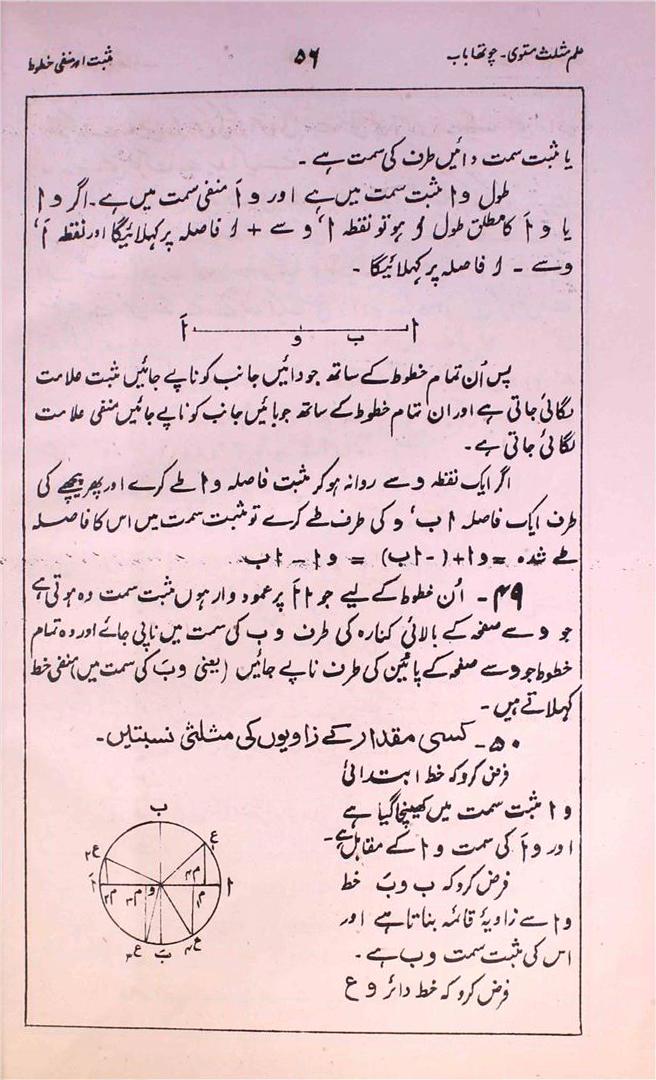 علم مثلث مستوی۔ چوتھا باب
۵۶
مثبت اور منفی خطوط
یا مثبت سمت دائیں طرف کی سمت ہے ۔
طول و ا مثبت سمت میں ہے اور و اَ منفی سمت میں ہے۔ اگر و ا
یا و اَ کا مطلق طول لا ہو تو نقطہ ا، و سے + لا فاصلہ پر کہلائیگا اور نقطہ اَ،
و سے - لا فاصلہ پر کہلائیگا ۔
اَ و ب ا
پس اُن تمام خطوط کے ساتھ جو دائیں جانب کو ناپے جائیں مثبت علامت
لگائی جاتی ہے اور ان تمام خطوط کے ساتھ جو بائیں جانب کو ناپے جائیں منفی علامت
لگائی جاتی ہے۔
اگر ایک نقطہ و سے روانہ ہو کر مثبت فاصلہ و ا طے کرے اور پھر پیچھے کی
طرف ایک فاصلہ ا ب، و کی طرف طے کرے تو مثبت سمت میں اس کا فاصلہ
طے شدہ = و ا + (- ا ب) = و ا - ا ب
۴۹۔ اُن خطوط کے لیے جو ا اَ پر عمود وار ہوں مثبت سمت وہ ہوتی ہے
جو و سے صفحہ کے بالائی کنارہ کی طرف و ب کی سمت میں ناپی جائے اور وہ تمام
خطوط جو و سے صفحہ کے پائین کی طرف ناپے جائیں (یعنی و بَ کی سمت میں) منفی خط
کہلاتے ہیں۔
۵۰۔ کسی مقدار کے زاویوں کی مثلثی نسبتیں۔
فرض کرو کہ خط ابتدائی
و ا مثبت سمت میں کھینچا گیا ہے
اور و اَ کی سمت و ا کے مقابل ہے۔
فرض کرو کہ ب و بَ خط
و ا سے زاویۂ قائمہ بناتا ہے اور
اس کی مثبت سمت و ب ہے ۔
فرض کرو کہ خط دائر و ع
ب
ع۲ ع
م۴
اَ م۲ م۳ و م ا
ع۳ بَ ع۴